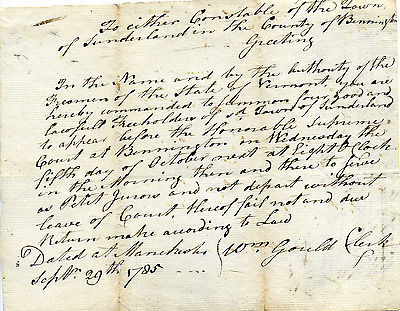 To either Constable of the Town
of Sunderland in the County of Bennington
Greeting
In the Name and by the Authority of the
Freemen of the State of Vermont you are
hereby commanded to summon four Good and
lawfull Freeholders of sd Town of Sunderland
to appear before the Honorable Supreme
Court at Bennington on Wednesday the
fifth day of October next at Eight o Clock
in the Morning then and there to serve
as Petet Jurors and not depart without
leave of Court. Hereof fail not and due
Return make acording to Law
Dated at Manchester Wm Gould Clerk
Septr 29th 1785